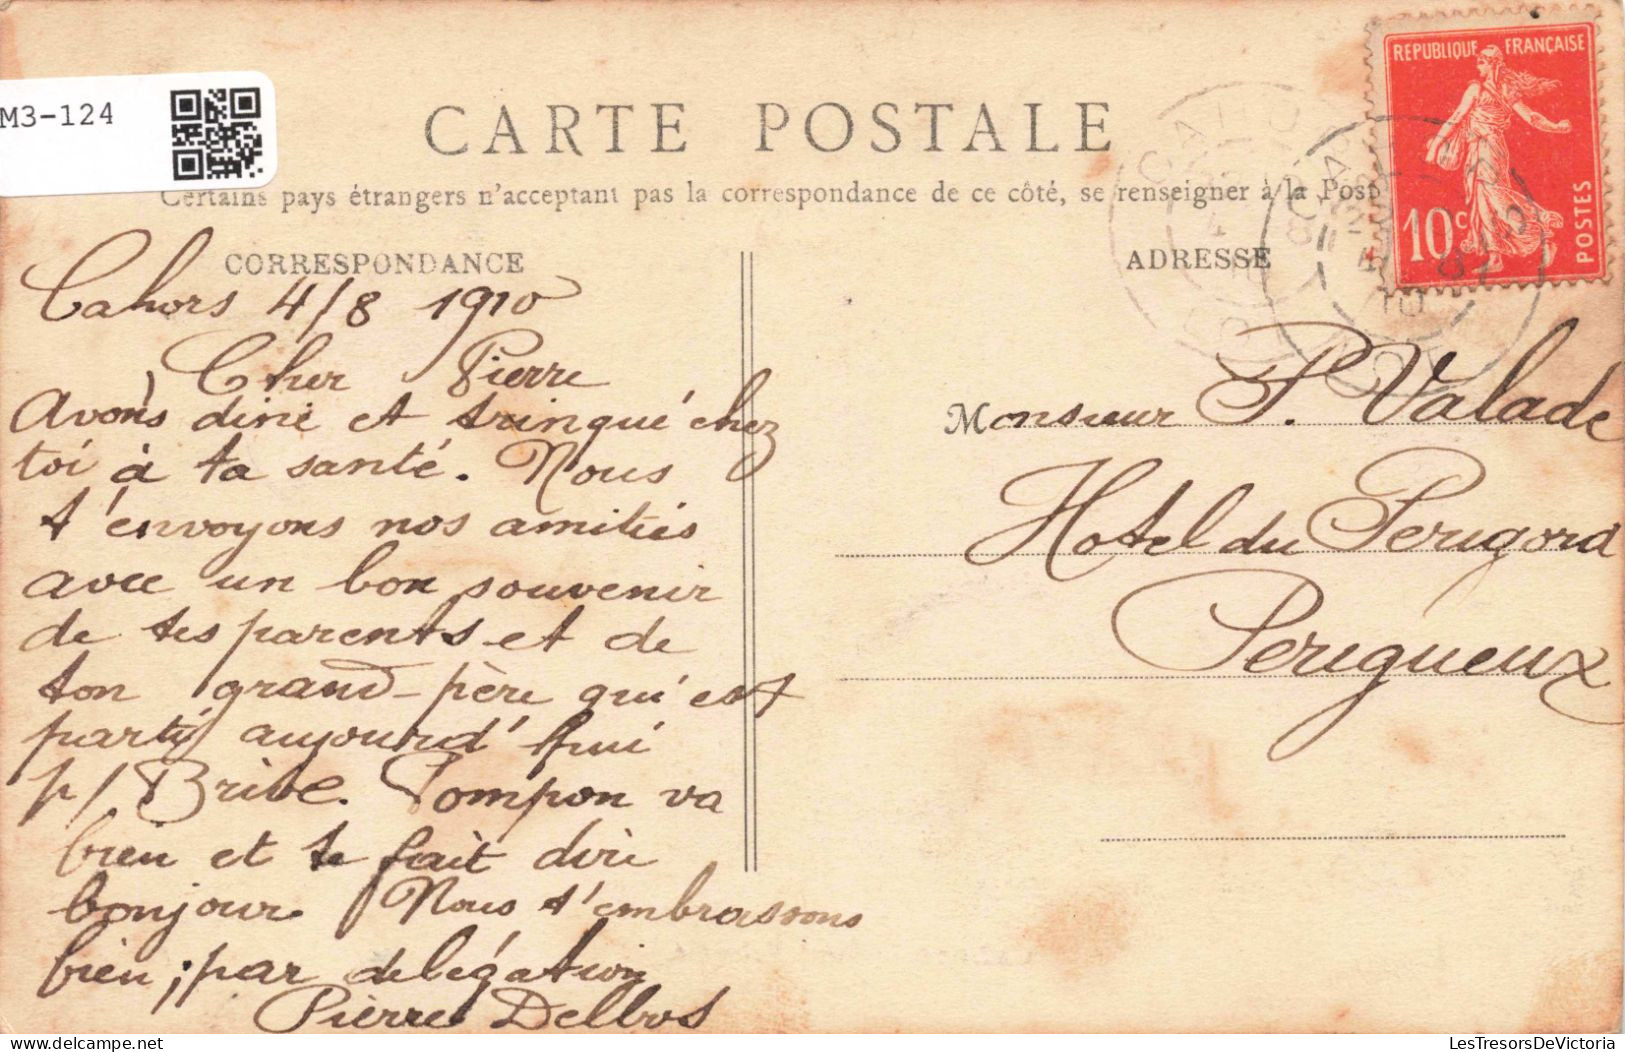 M3-124
CARTE POSTALE
Certains pays étrangers n'acceptant pas la correspondance de ce côté, se renseigner à la Post
CORRESPONDANCE
Cahors 4/8 1910
Cher Pierre
Avons diné et trinqué chez
toi à ta santé. Nous
t'envoyons nos amitiés
avec un bon souvenir
de tes parents et de
ton grand-père qui est
parti aujourd'hui
p/ Brive. Pompon va
bien et te fait dire
bonjour. Nous t'embrassons
bien; par délégation
Pierre Delbos
ADRESSE
REPUBLIQUE FRANÇAISE
10c
POSTES
Monsieur P. Valade
Hotel du Perigord
Perigueux
LesTresorsDeVictoria
delcampe.net
LesTresorsDeVictoria